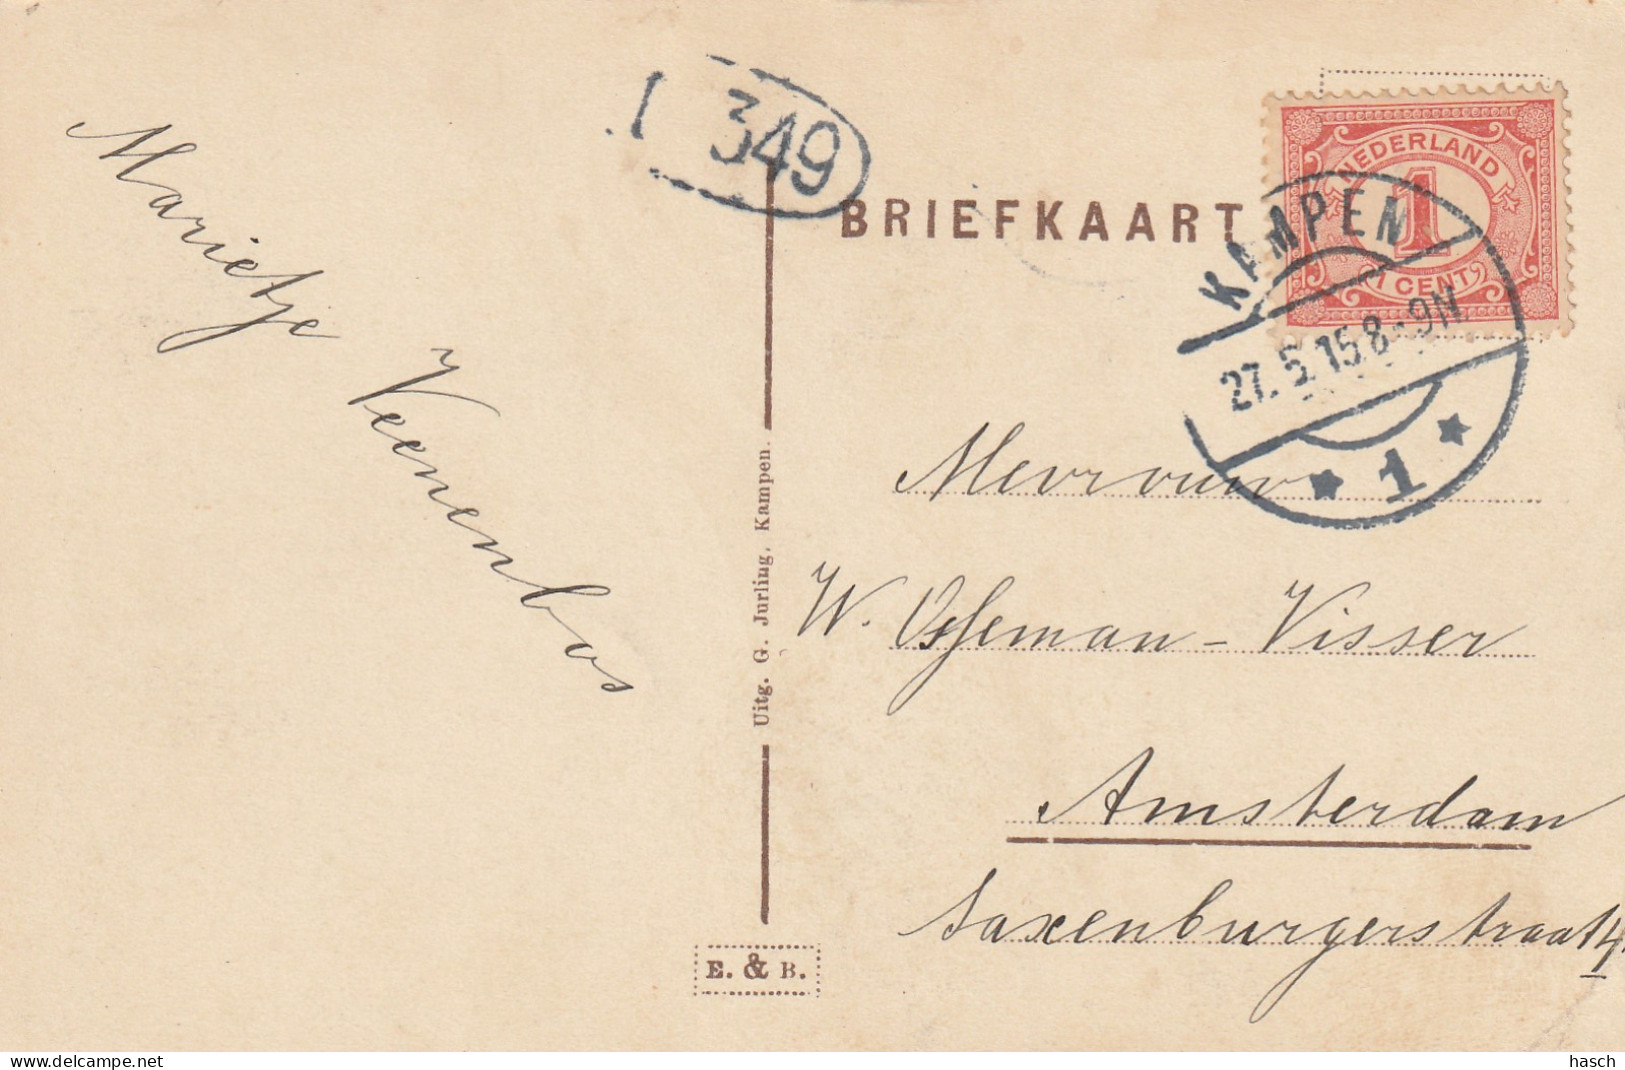 Marietje
Veenenbos
1 349
BRIEFKAART
NEDERLAND
1
1 CENT
KAMPEN
27.5.15 8-9N
1
Mevrouw
W. Visser
Amsterdam
Saxenburgerstraat 14
Uitg. G. Jurling, Kampen.
E. & B.
hasch
delcampe.net